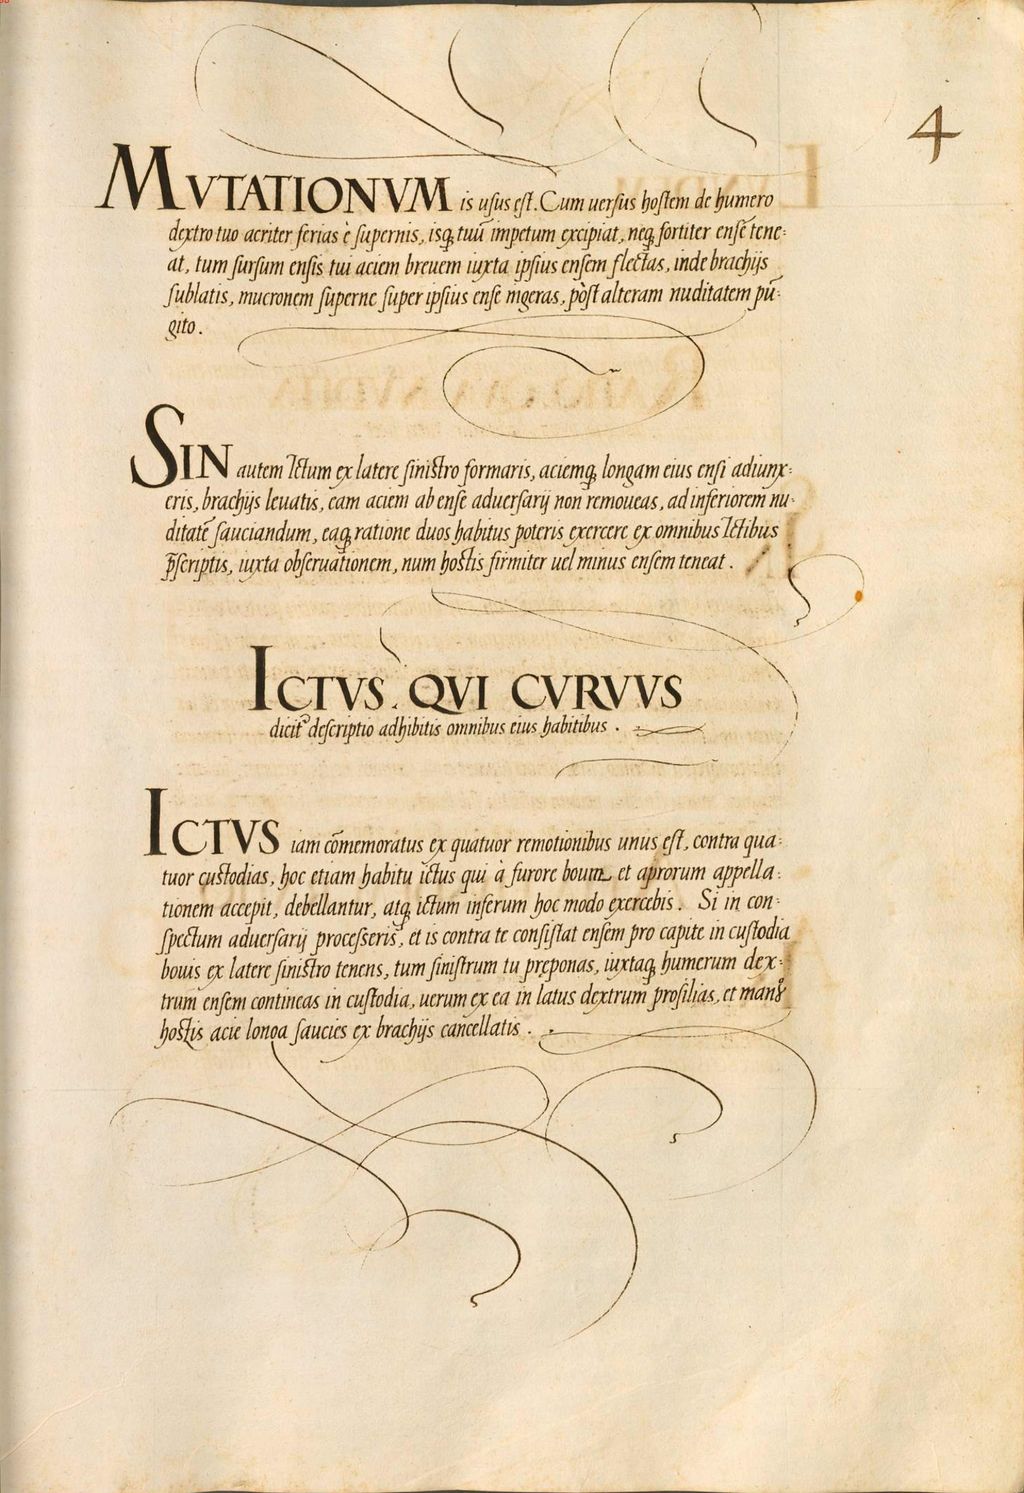 4
MVTATIONVM is usus est. Cum uersus hostem de humero
dextro tuo acriter ferias è supernis, isq; tuũ impetum excipiat, neq; fortiter ensẽ tene:
at, tum sursum ensis tui aciem breuem iuxta ipsius ensem flectas, inde brachijs
sublatis, mucronem superne super ipsius ense ingeras, pòst alteram nuditatem pũ:
gito.
SIN autem Ictum ex latere sinistro formaris, aciemq; longam eius ensi adiunx:
eris, brachijs leuatis, eam aciem ab ense aduersarij non remoueas, ad inferiorem nu:
ditatẽ sauciandum, eaq; ratione duos habitus poteris exercere ex omnibus Ictibus
p̃scriptis, iuxta obseruationem, num hostis firmiter uel minus ensem teneat.
ICTVS. QVI CVRVVS
dicit᷑ descriptio adhibitis omnibus eius habitibus.
ICTVS iam cõmemoratus ex quatuor remotionibus unus est, contra qua:
tuor custodias, hoc etiam habitu ictus qui à furore boum et aprorum appella:
tionem accepit, debellantur, atq; ictum inferum hoc modo exercebis. Si in con:
spectum aduersarij processeris, et is contra te consistat ensem pro capite in custodia
bouis ex latere sinistro tenens, tum sinistrum tu pręponas, iuxtaq; humerum dex:
trum ensem contineas in custodia, uerum ex ea in latus dextrum prosilias, et manꝰ
hostis acie longa saucies ex brachijs cancellatis.